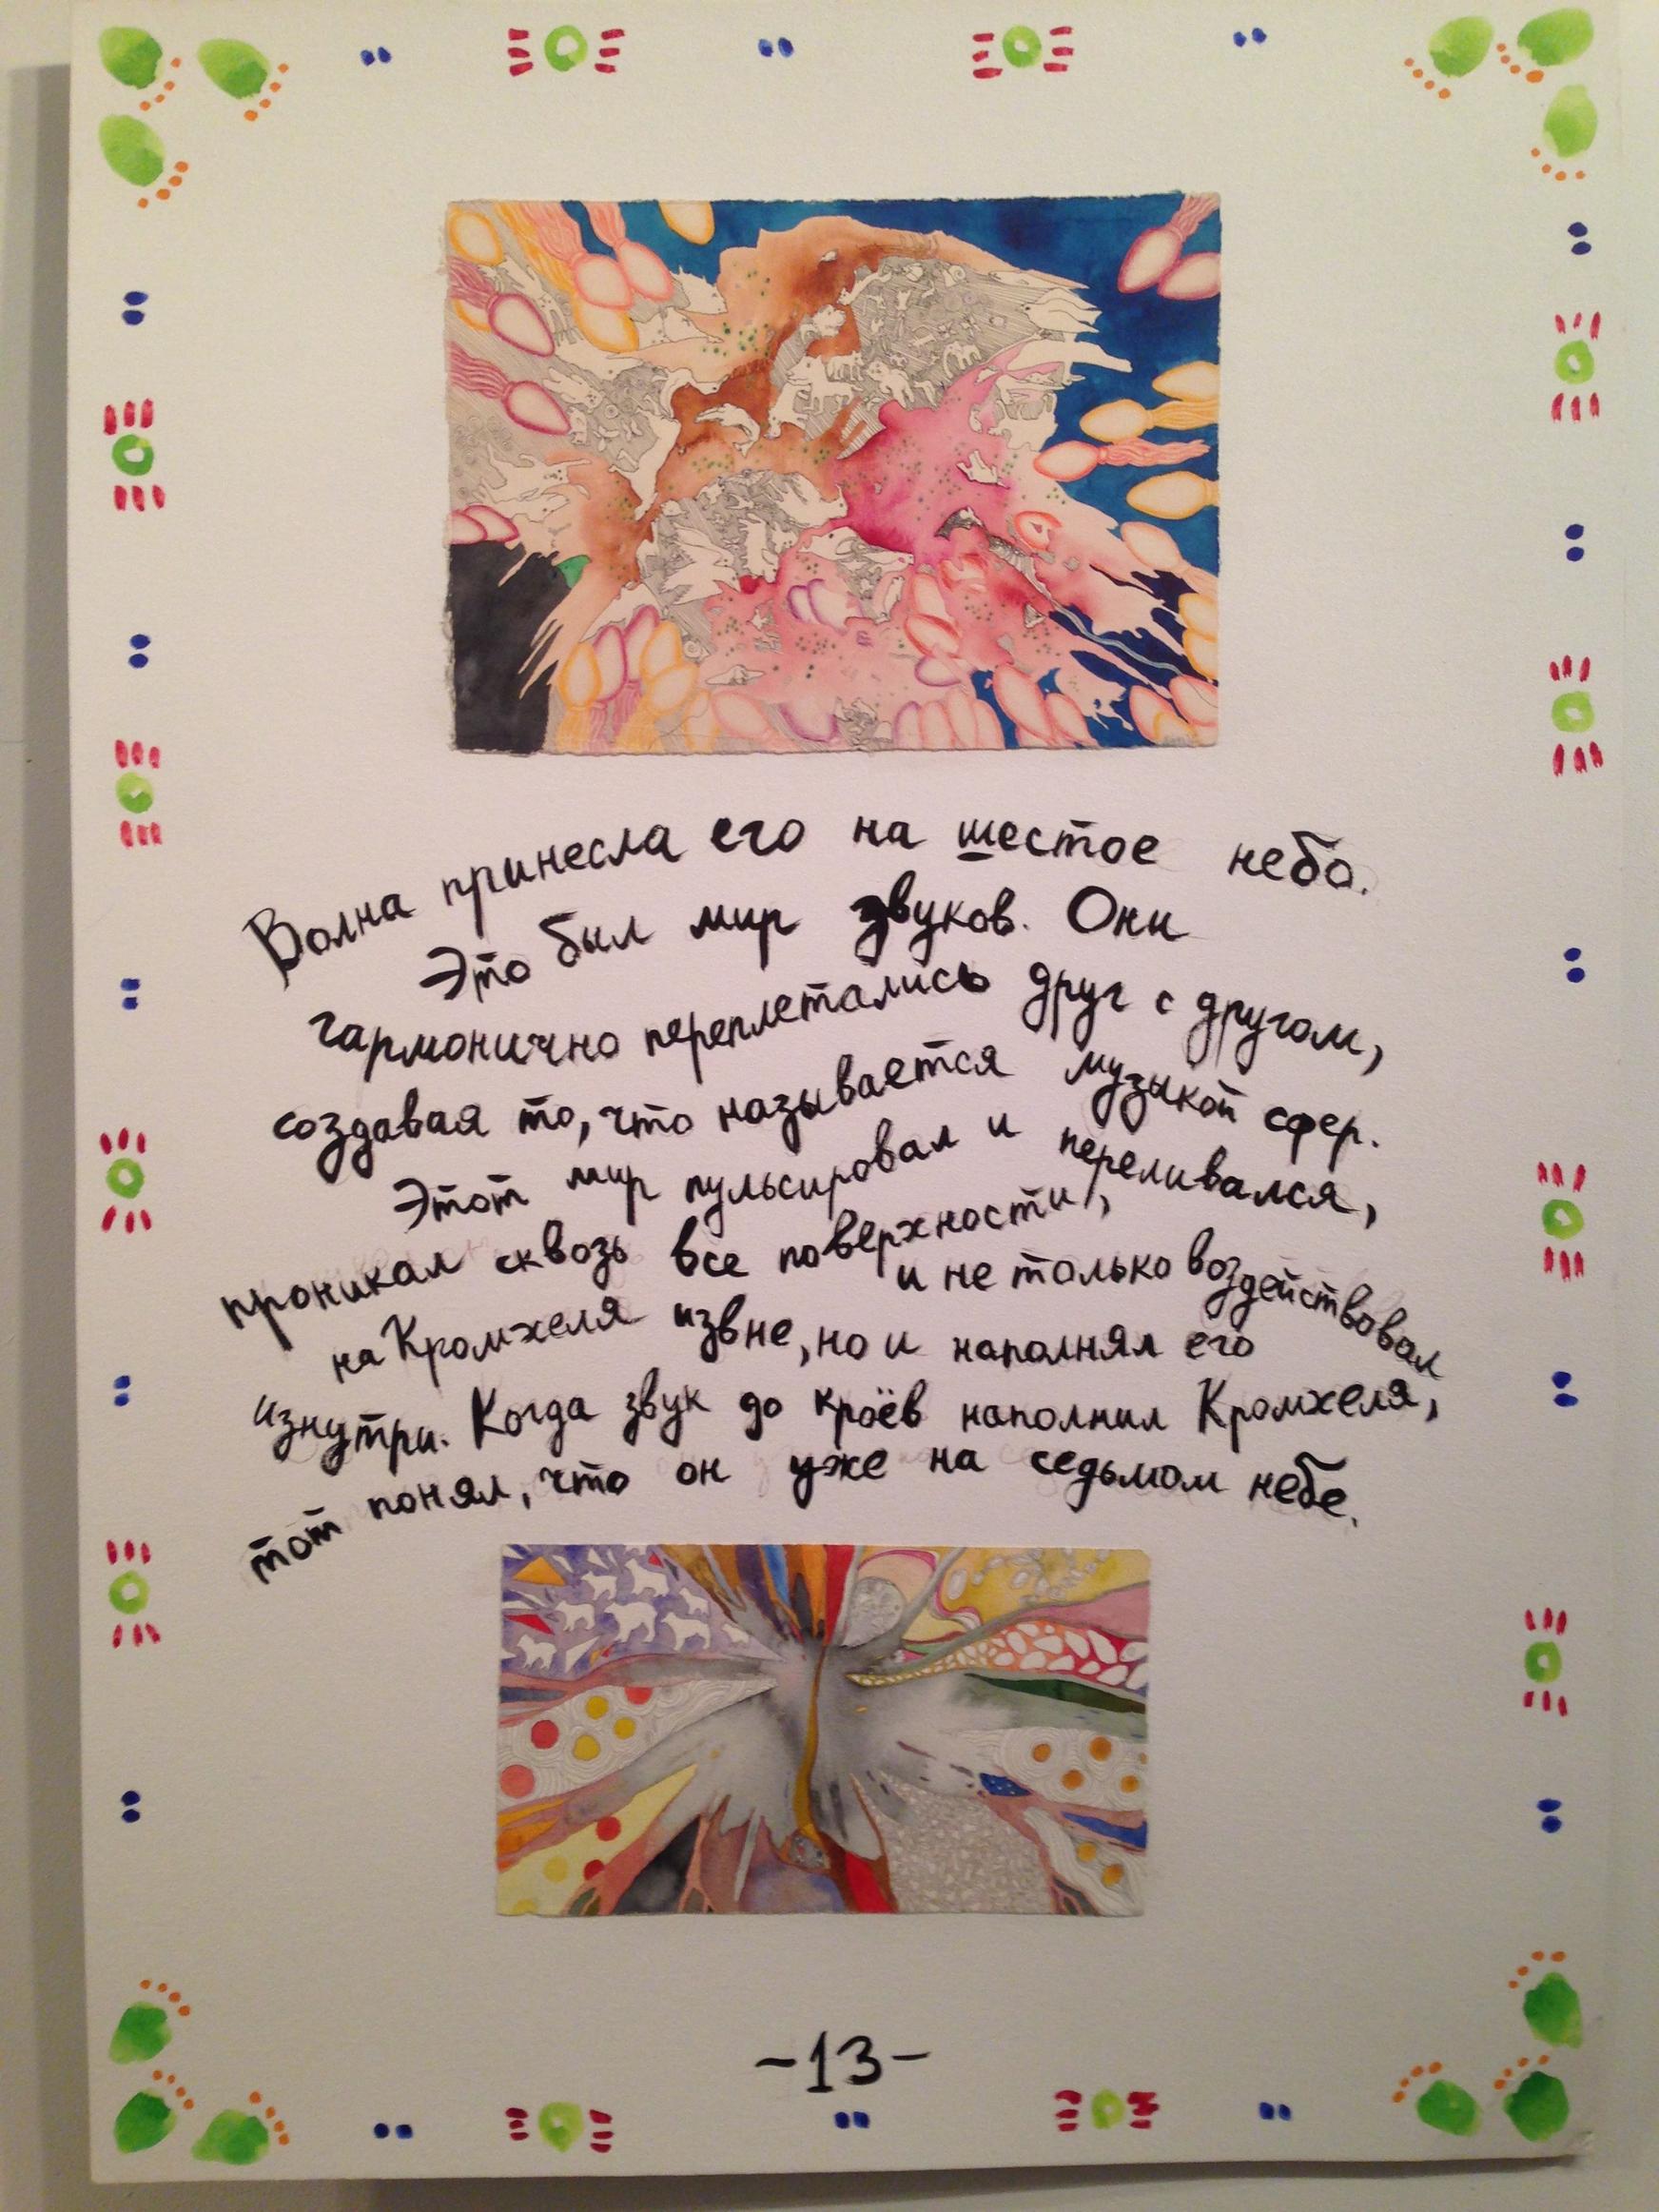 Волна принесла его на шестое небо.
Это был мир звуков. Они
гармонично переплетались друг с другом,
создавая то, что называется музыкой сфер.
Этот мир пульсировал и переливался,
проникал сквозь все поверхности,
и не только воздействовал
на Кромхеля извне, но и наполнял его
изнутри. Когда звук до кроёв наполнил Кромхеля,
тот понял, что он уже на седьмом небе.
-13-